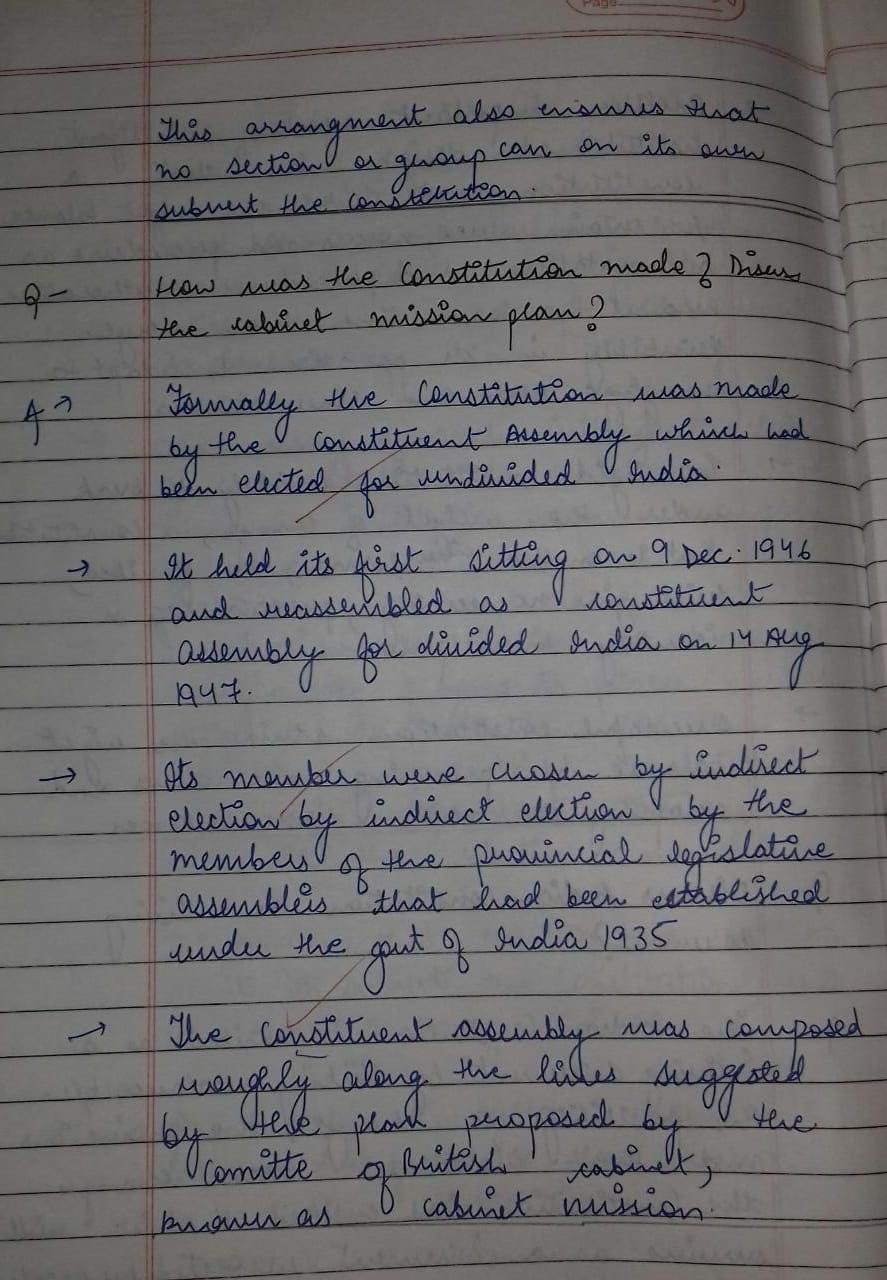 Page
This arrangment also ensures that
no section or group can on its own
subvert the constitution.
Q- How was the Constitution made? Discuss
the cabinet mission plan?
A→ Formally the Constitution was made
by the constituent Assembly which had
been elected for undivided India.
→ It held its first sitting on 9 Dec. 1946
and reassembled as constituent
assembly for divided India on 14 Aug
1947.
→ Its member were chosen by indirect
election by indirect election by the
members of the provincial legislative
assembleis that had been established
under the govt of India 1935
→ The constituent assembly was composed
roughly along the lines suggested
by the plan proposed by the
Comitte of British cabinet,
known as cabinet mission.